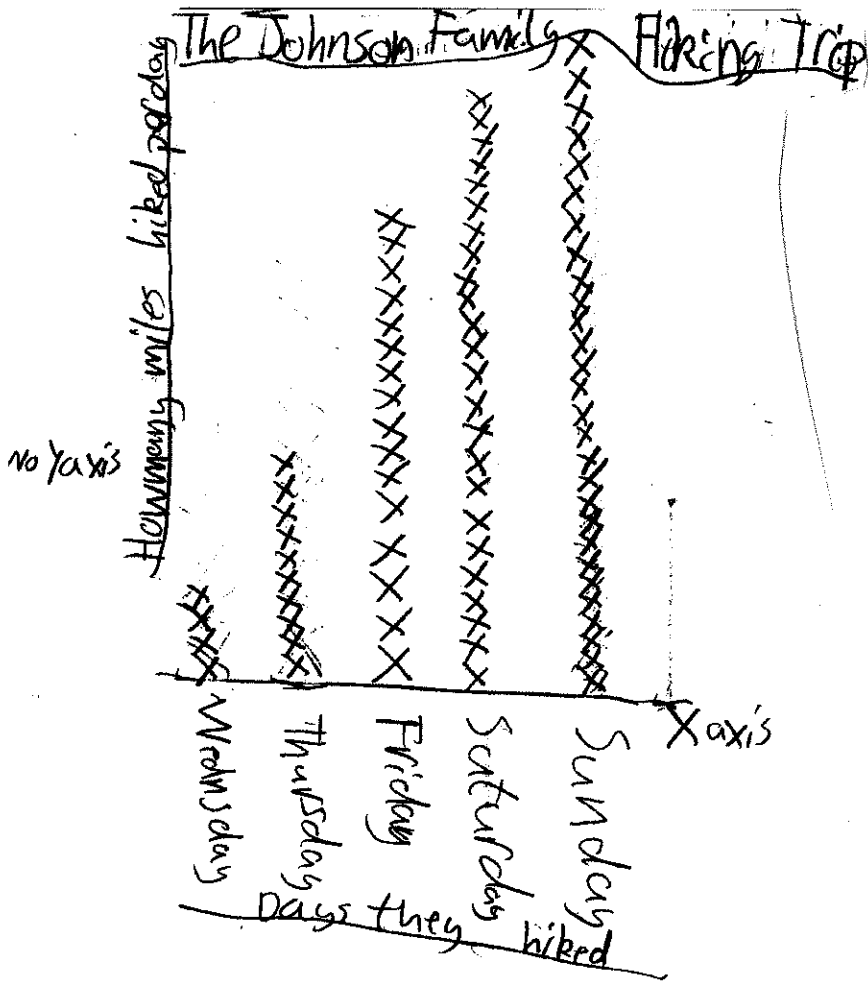 The Johnson Family Hiking Trip
How many miles hiked per day
No Y axis
X axis
Wednsday
Thursday
Friday
Saturday
Sunday
Days they hiked